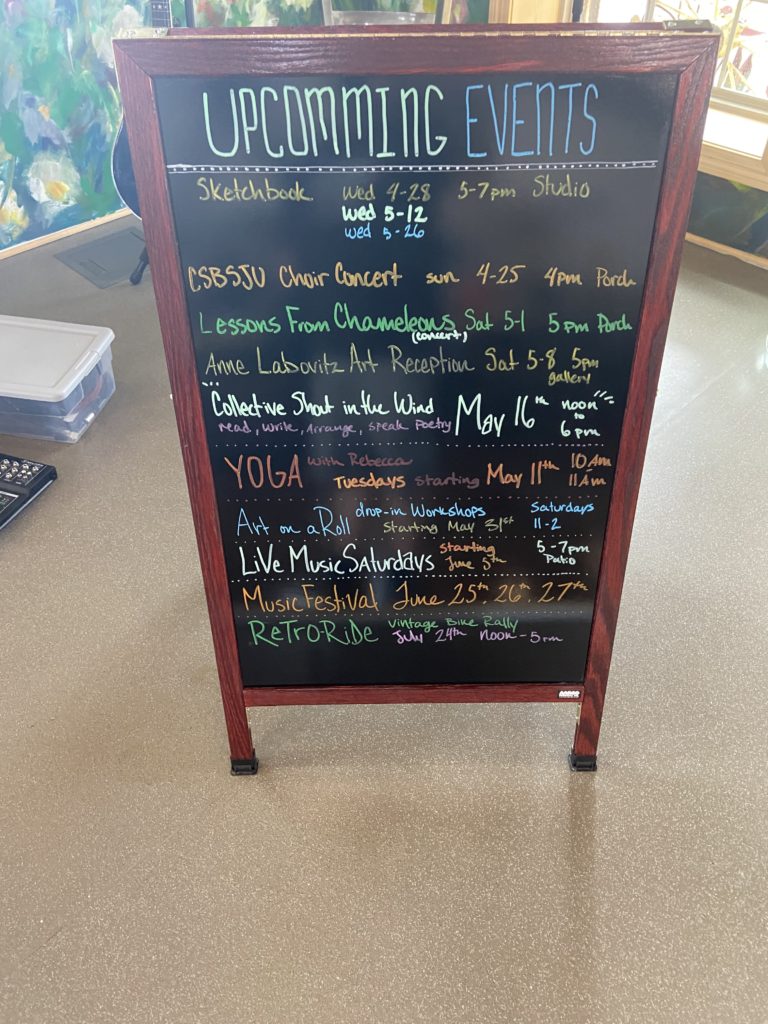 UPCOMMING EVENTS
Sketchbook Wed 4-28 5-7pm Studio
Wed 5-12
Wed 5-26
CSBSJU Choir Concert sun 4-25 4pm Porch
Lessons From Chameleons Sat 5-1 5pm Porch
(concert)
Anne Labovitz Art Reception Sat 5-8 5pm
gallery
Collective Shout in the Wind May 16th noon
to
6pm
read, write, arrange, speak Poetry
YOGA with Rebecca
Tuesdays starting May 11th 10Am
11Am
Art on a Roll drop-in Workshops Saturdays
Starting May 31st 11-2
LiVe Music Saturdays starting 5-7pm
June 5th Patio
Music Festival June 25th, 26th, 27th
ReTrO-RiDe Vintage Bike Rally
July 24th Noon-5pm